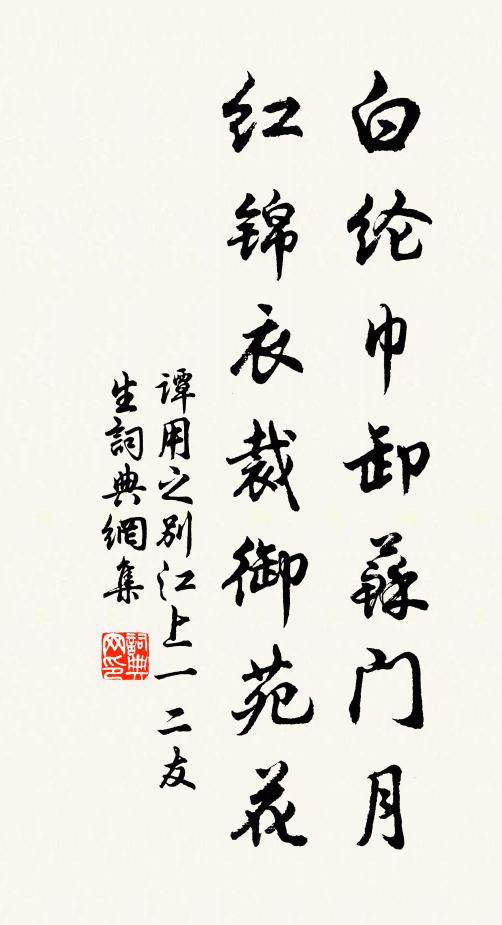 白纶巾卸蘇门月
红锦衣裁御苑花
谭用之别江上一二友
生詞典網集
詞典